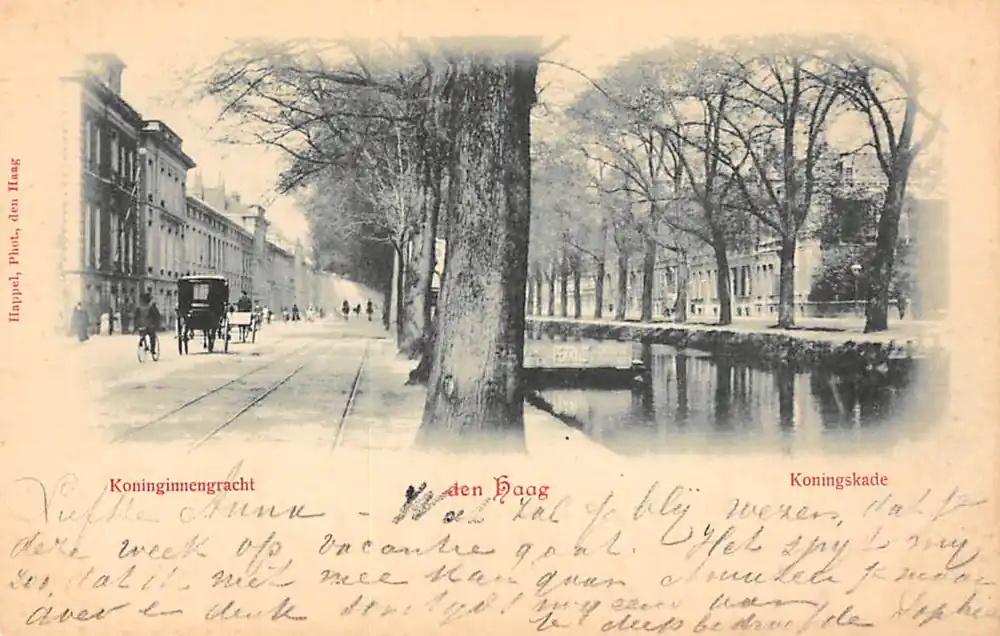 Happel, Phot., den Haag
Koninginnengracht
den Haag
Koningskade
Liefste Anna - Wat zal je blij wezen, dat je
deze week op vacantie gaat. Het spijt mij
zoo, dat ik niet mee kan gaan Amuseer je maar
over en denk
je diepbedroefde Sophie